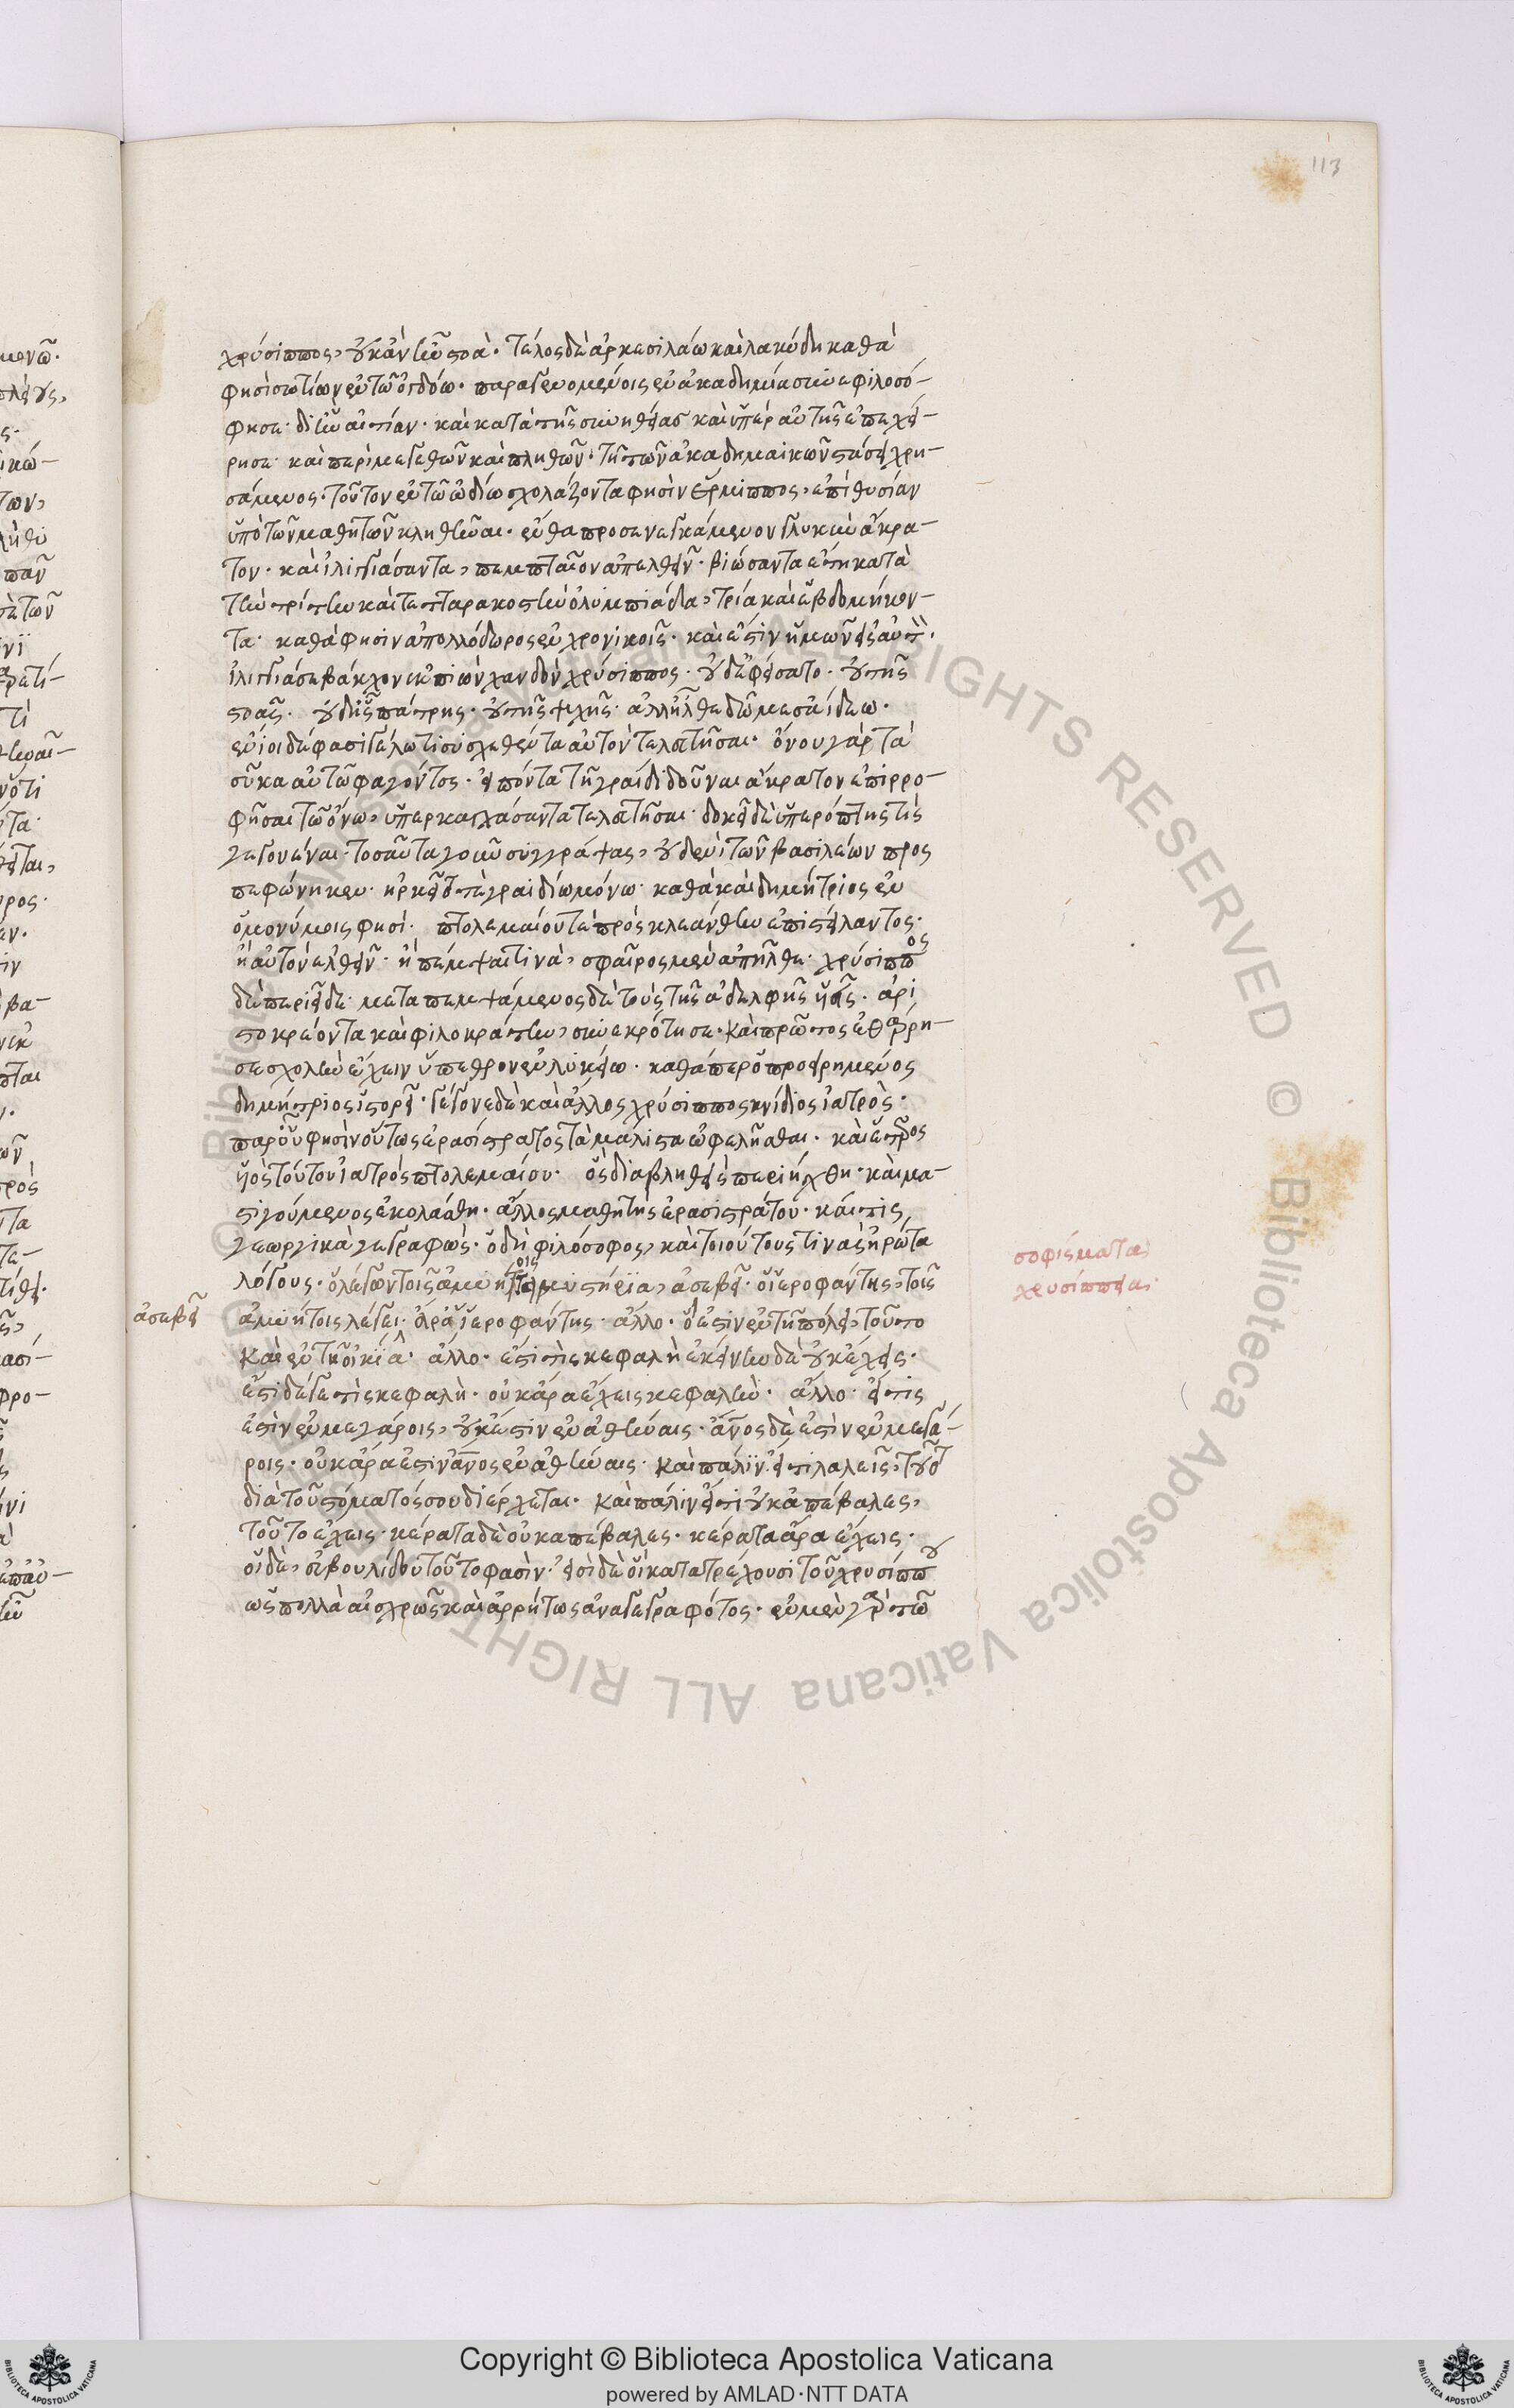 113
χρύσιππος, οὐκ ἂν ἦν στοά. τέλος δὲ ἀρκεσιλάω καὶ λακύδη καθά
φησὶ σωτίων ἐν τῶ ὀγδόω. παραγενομένοις ἐν ἀκαδημία συνεφιλοσό-
φησε. δι' ἣν αἰτίαν. καὶ κατὰ τῆς συνηθείας καὶ ὑπὲρ αὐτῆς ἐπεχεί-
ρησε. καὶ περὶ μεγεθῶν καὶ πληθῶν. τῆ τῶν ἀκαδημαικῶν στάσει χρη-
σάμενος. τοῦτον ἐν τῶ ὠδίω σχολάζοντα φησὶν ἕρμιππος, ἐπὶ θυσίαν
ὑπὸ τῶν μαθητῶν κληθῆναι. ἔνθα προσενεγκάμενον γλυκὺν ἄκρα-
τον. καὶ ἰλιγγιάσαντα, πεμπταῖον ἀπελθεῖν. βιώσαντα ἔτη κατὰ
τὴν τρίτην καὶ τετταρακοστὴν ὀλυμπιάδα, τρία καὶ ἑβδομήκον-
τα. καθά φησιν ἀπολλόδωρος ἐν χρονικοῖς. καὶ ἔστιν ἡμῶν εἰς αὐτόν.
ἰλιγγίασε βάκχον ἐκπιὼν χανδὸν χρύσιππος. οὐδ' ἐφείσατο. οὐ τῆς
στοᾶς. οὐδ' ἧς πάτρης. οὐ τῆς ψυχῆς. ἀλλ' ἦλθε δῶμ' ἐς ἀίδεω.
ἔνιοι δέ φασι γέλωτι συσχεθέντα αὐτὸν τελευτῆσαι. ὄνου γὰρ τὰ
σῦκα αὐτῶ φαγόντος. εἰπόντα τῆ γραῒ διδοῦναι ἄκρατον ἐπιρρο-
φῆσαι τῶ ὄνω, ὑπερκαγχάσαντα τελευτῆσαι. δοκεῖ δὲ ὑπερόπτης τίς
γεγονέναι. τοσαῦτα γοῦν συγγράψας, οὐδενὶ τῶν βασιλέων προς
πεφώνηκεν. ἠρκεῖτό τε γραιδίω μόνω. καθὰ καὶ δημήτριος ἐν
ὁμονύμοις φησί. πτολεμαίου τὲ πρὸς κλεάνθην ἐπιστείλαντος.
ἢ αὐτὸν ἐλθεῖν. ἢ πέμψαι τινὰ, σφαῖρος μὲν ἀπῆλθε. χρύσιππος
δὲ περιεῖδε. μεταπεμψάμενος δὲ τοὺς τῆς ἀδελφῆς υἱεῖς. ἀρι
στοκρέοντα καὶ φιλοκράτην, συνεκρότησε. καὶ πρῶτος ἐθάρρη-
σε σχολὴν ἔχειν ὕπαιθρον ἐν λυκείω. καθάπερ ὁ προειρημένος
δημήτριος ἱστορεῖ. γέγονε δὲ καὶ ἄλλος χρύσιππος κνίδιος ἰατρὸς.
παρ' οὗ φησὶν οὕτως ἐρασίστρατος τὰ μάλιστα ὠφελῆσθαι. καὶ ἕτερος
υἱὸς τούτου ἰατρὸς πτολεμαίου. ὃς διαβληθεὶς περιήχθη. καὶ μα-
στιγούμενος ἐκολάσθη. ἄλλος μαθητὴς ἐρασιστράτου. καί τις
γεωργικὰ γεγραφώς. ὁ δὴ φιλόσοφος, καὶ τοιούτους τινὰς ἠρώτα
λόγους. ὁ λέγων τοῖς ἀμυήτοις τὰ μυστήρια, ἀσεβεῖ. ὁ ἱεροφάντης, τοῖς
ἀμυήτοις λέγει. ἀσεβεῖ ἄρα ὁ ἱεροφάντης. ἄλλο. ὃ δ' ἔστιν ἐν τῆ πόλει, τοῦτο
καὶ ἐν τῆ οἰκία. ἄλλο. ἔστι τίς κεφαλή ἐκείνην δὲ οὐκ ἔχεις.
ἔστι δέ γε τὶς κεφαλὴ. οὐκ ἄρα ἔχεις κεφαλὴν. ἄλλο. εἴ τις
ἐστὶν ἐν μεγάροις, οὐκ ἔστιν ἐν ἀθήναις. ἄνος δὲ ἐστὶν ἐν μεγά-
ροις. οὐκ ἄρα ἐστὶν ἄνος ἐν ἀθήναις. καὶ πάλιν. εἴ τι λαλεῖς, τοῦτο
διὰ τοῦ στόματός σου διέρχεται. καὶ πάλιν εἴ τι οὐκ ἀπέβαλες,
τοῦτο ἔχεις. κέρατα δὲ οὐκ ἀπέβαλες. κέρατα ἄρα ἔχεις.
οἱ δὲ, εὐβουλίδου τοῦτο φασίν. εἰσὶ δὲ οἳ κατατρέχουσι τοῦ χρυσίππου
ὡς πολλὰ αἰσχρῶς καὶ ἀρρήτως ἀναγεγραφότος. ἐν μὲν γὰρ τῶ
σοφίσματα
χρυσίππεια.
ἀσεβεῖ
Copyright © Biblioteca Apostolica Vaticana
powered by AMLAD·NTT DATA